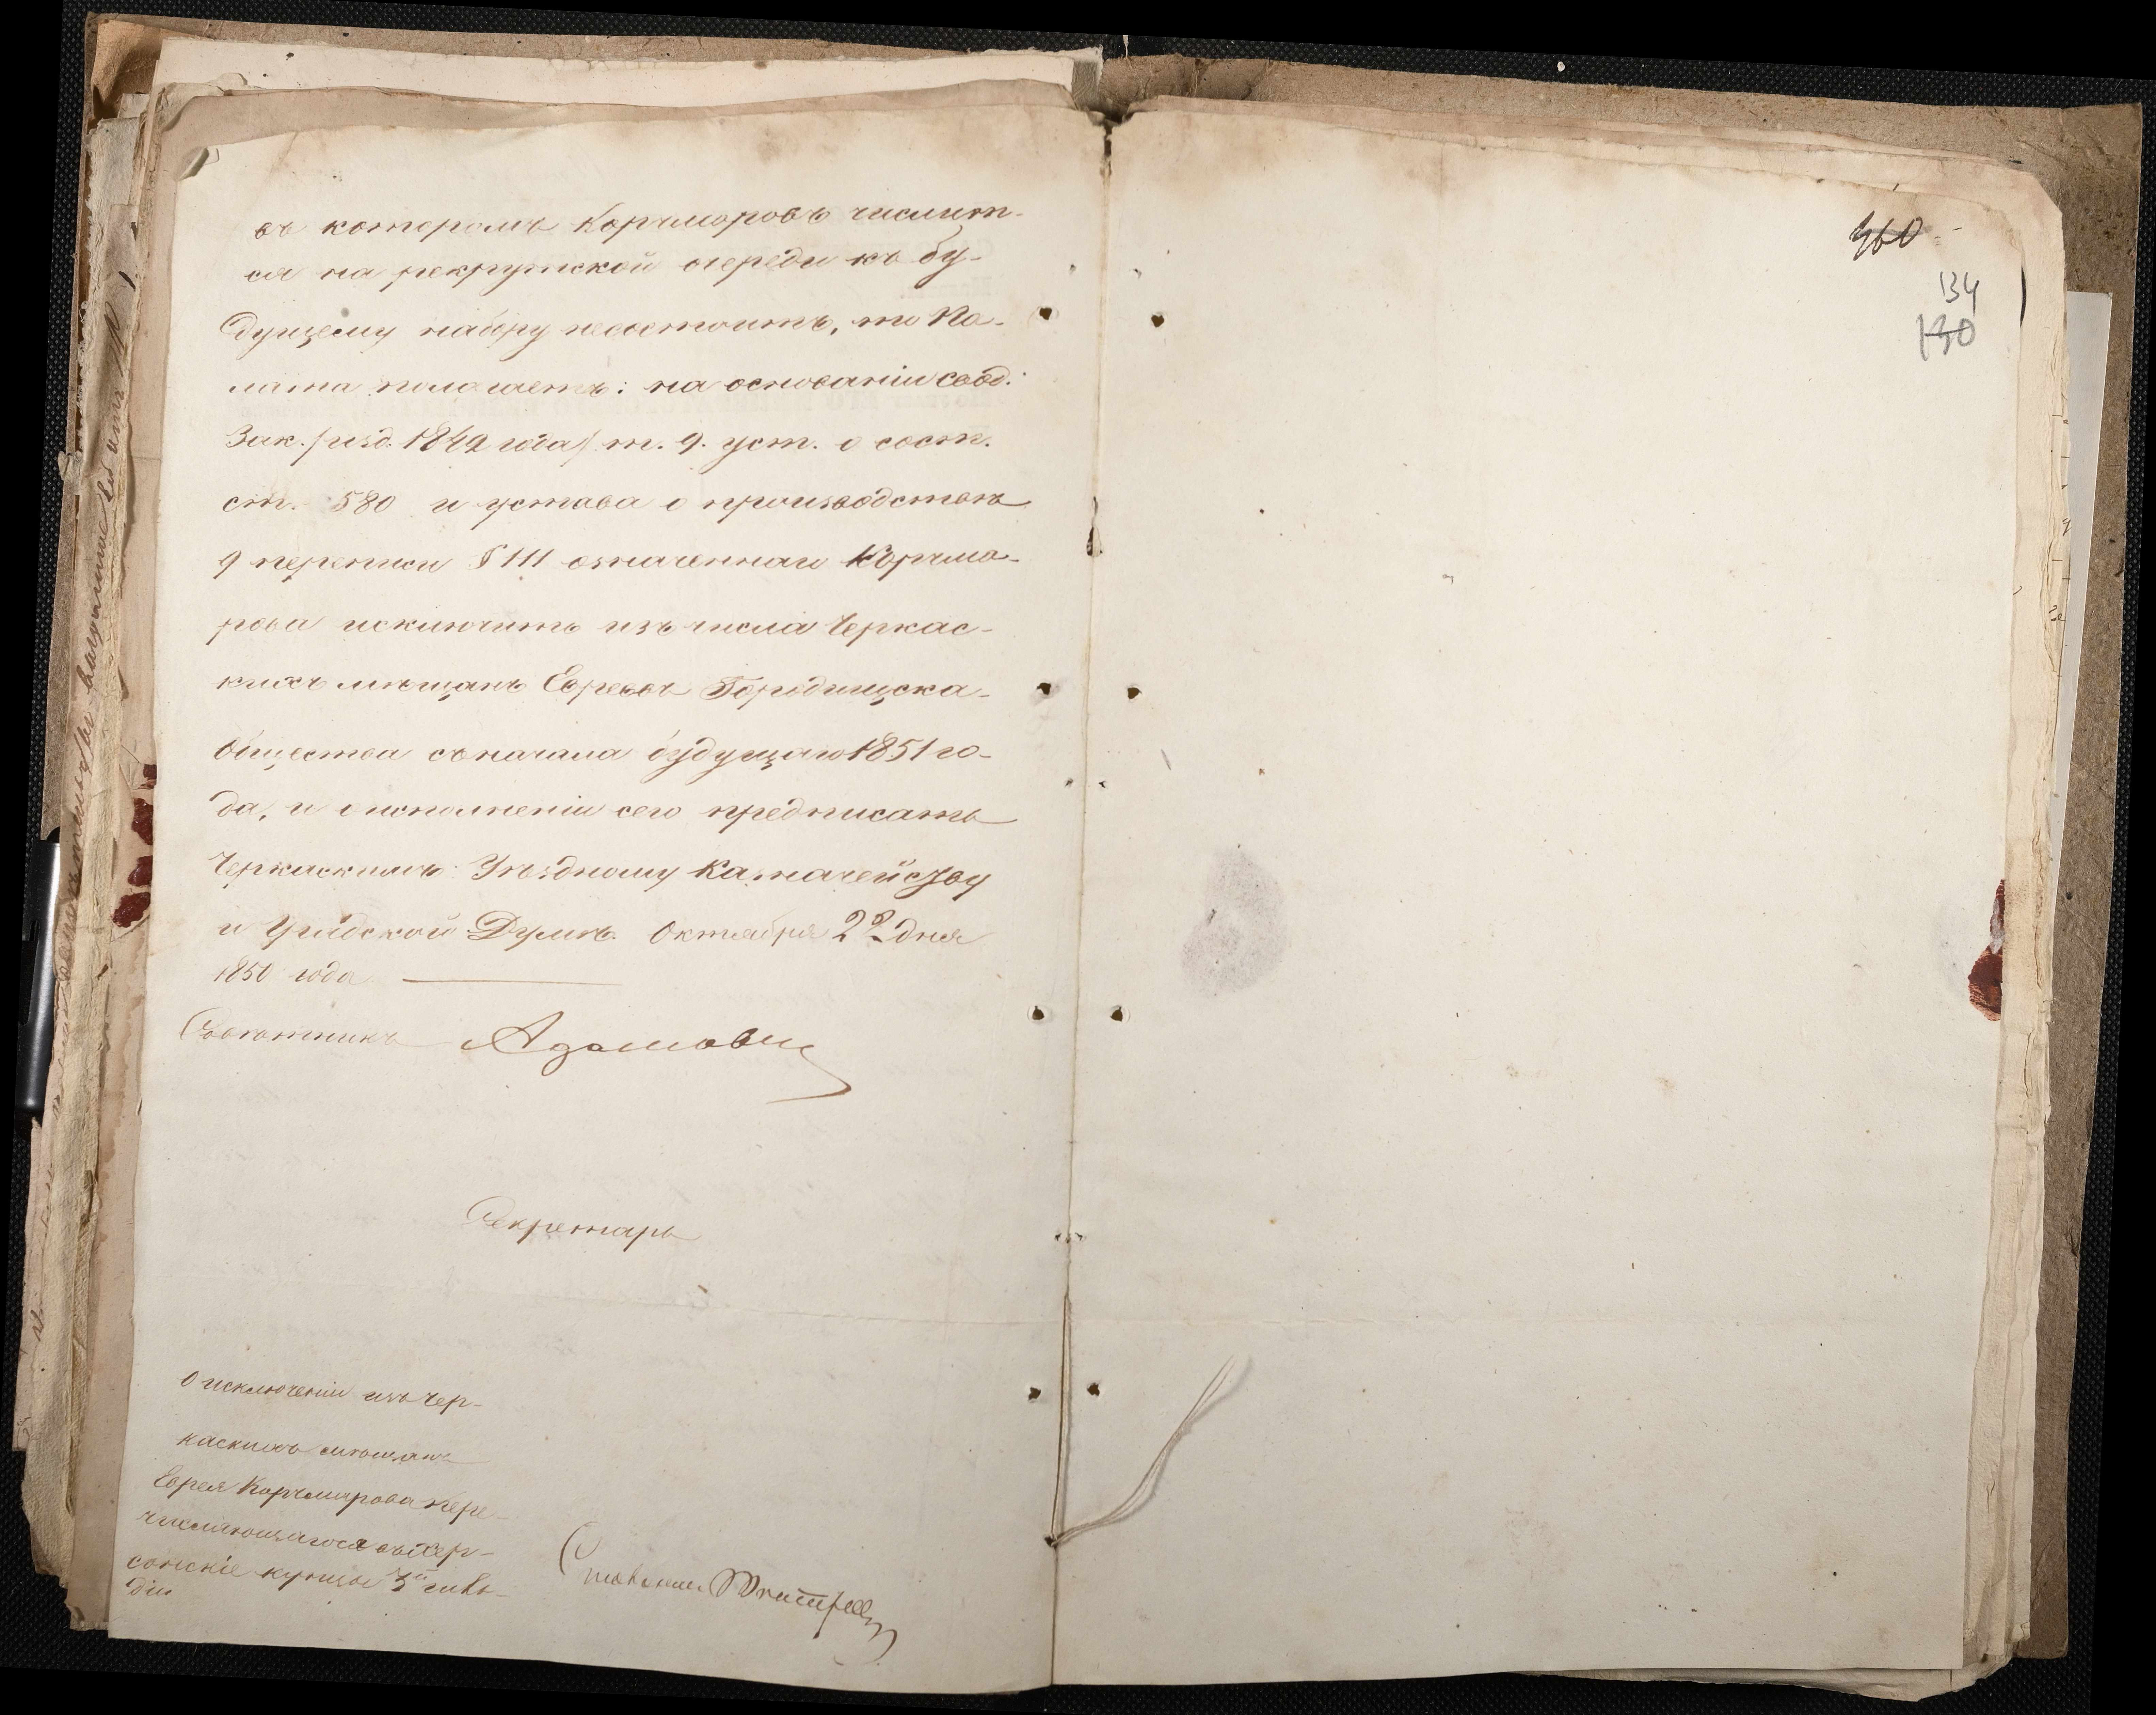 въ которомъ Корчмаровъ числит-
ся на рекрутской очереди къ бу-
дущему набору несостоитъ, то Па-
лата полагаетъ: на основаніи Свод:
Зак. /изд. 1842 года/ т. 9. уст. о сост.
ст. 580 и устава о производствѣ
9 переписи § 111 означеннаго Корчма-
рова исключить изъ числа Черкас-
кихъ мѣщанъ Евреевъ Городищска-
общества съ начала будущаго 1851 го-
да, и о исполненіи сего предписать
Черкаскимъ: Уѣздному Казначейству
и Градской Думѣ. Октября 22 дня
1850 года
Совѣтникъ Адамови
Секретарь
О исключеніи изъ Чер-
каскихъ мѣщанъ
Еврея Корчмарова пере-
числяющагося въ Хер-
сонскіе купцы 3й гиль-
діи
360
134
130